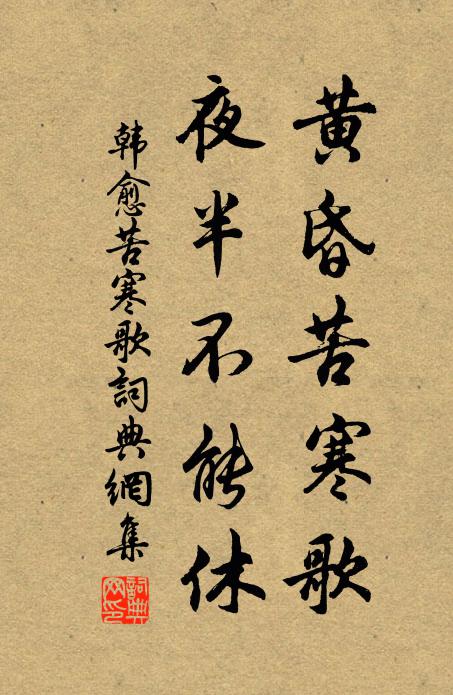 黄昏苦寒歌
夜半不能休
韩愈苦寒歌詞典網集
詞典网印